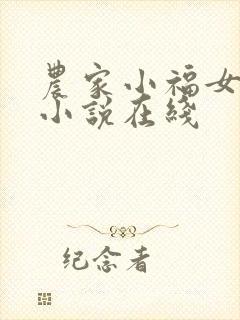 農家小福女
小說在綫
纪念者